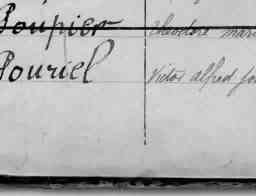 Poupier Théodore mari
Pouriel Victor alfred jos